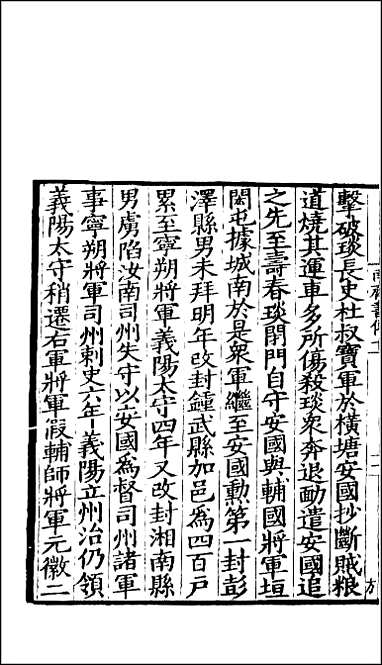 擊破琰長史杜叔寶軍於橫塘安國抄斷賊粮
道燒其運車多所傷殺琰衆奔退動遣安國追
之先至壽春琰閉門自守安國與輔國將軍垣
閎屯據城南於是衆軍繼至安國勲第一封彭
澤縣男未拜明年改封鍾武縣加邑爲四百戶
累至寧朔將軍義陽太守四年又改封湘南縣
男虜陷汝南司州失守以安國爲督司州諸軍
事寧朔將軍司州刺史六年義陽立州治仍領
義陽太守稍遷右軍將軍假輔師將軍元徽二